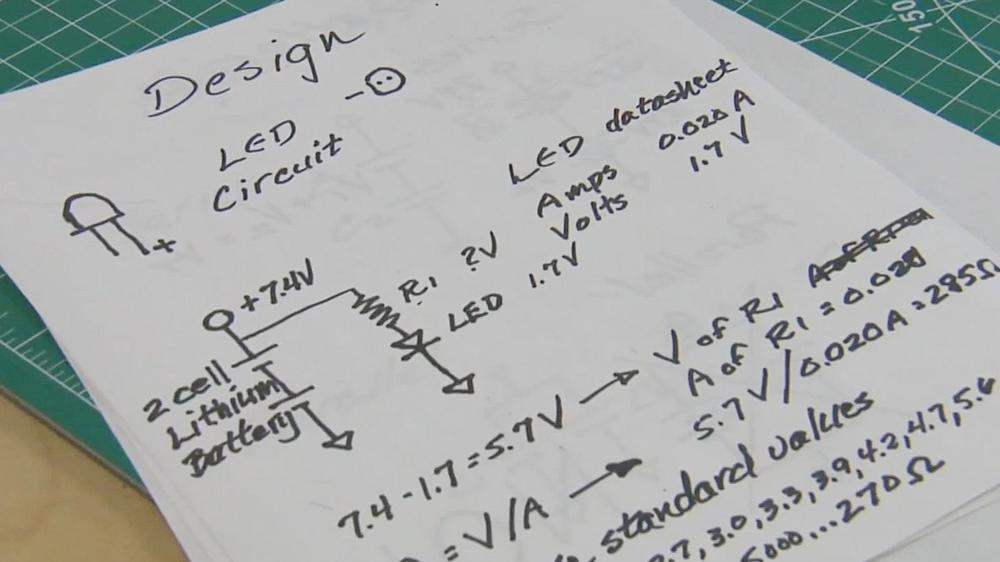 Design
LED
Circuit
-
+
LED datasheet
Amps 0.020 A
Volts 1.7 V
+7.4V
R1 ?V
LED 1.7V
2 cell
Lithium
Battery
7.4 - 1.7 = 5.7V → V of R1
A of R1 = 0.020
= V/A → 5.7V/0.020A = 285Ω
standard values
2.7, 3.0, 3.3, 3.9, 4.2, 4.7, 5.6
...270Ω
150